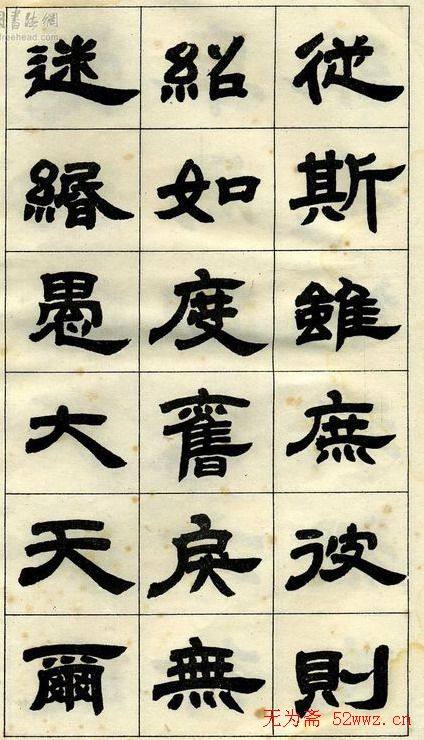 從斯雖庶彼則
紹如度舊戾無
迷緡愚大天爾
freehead.com
无为斋 52wwz.cn